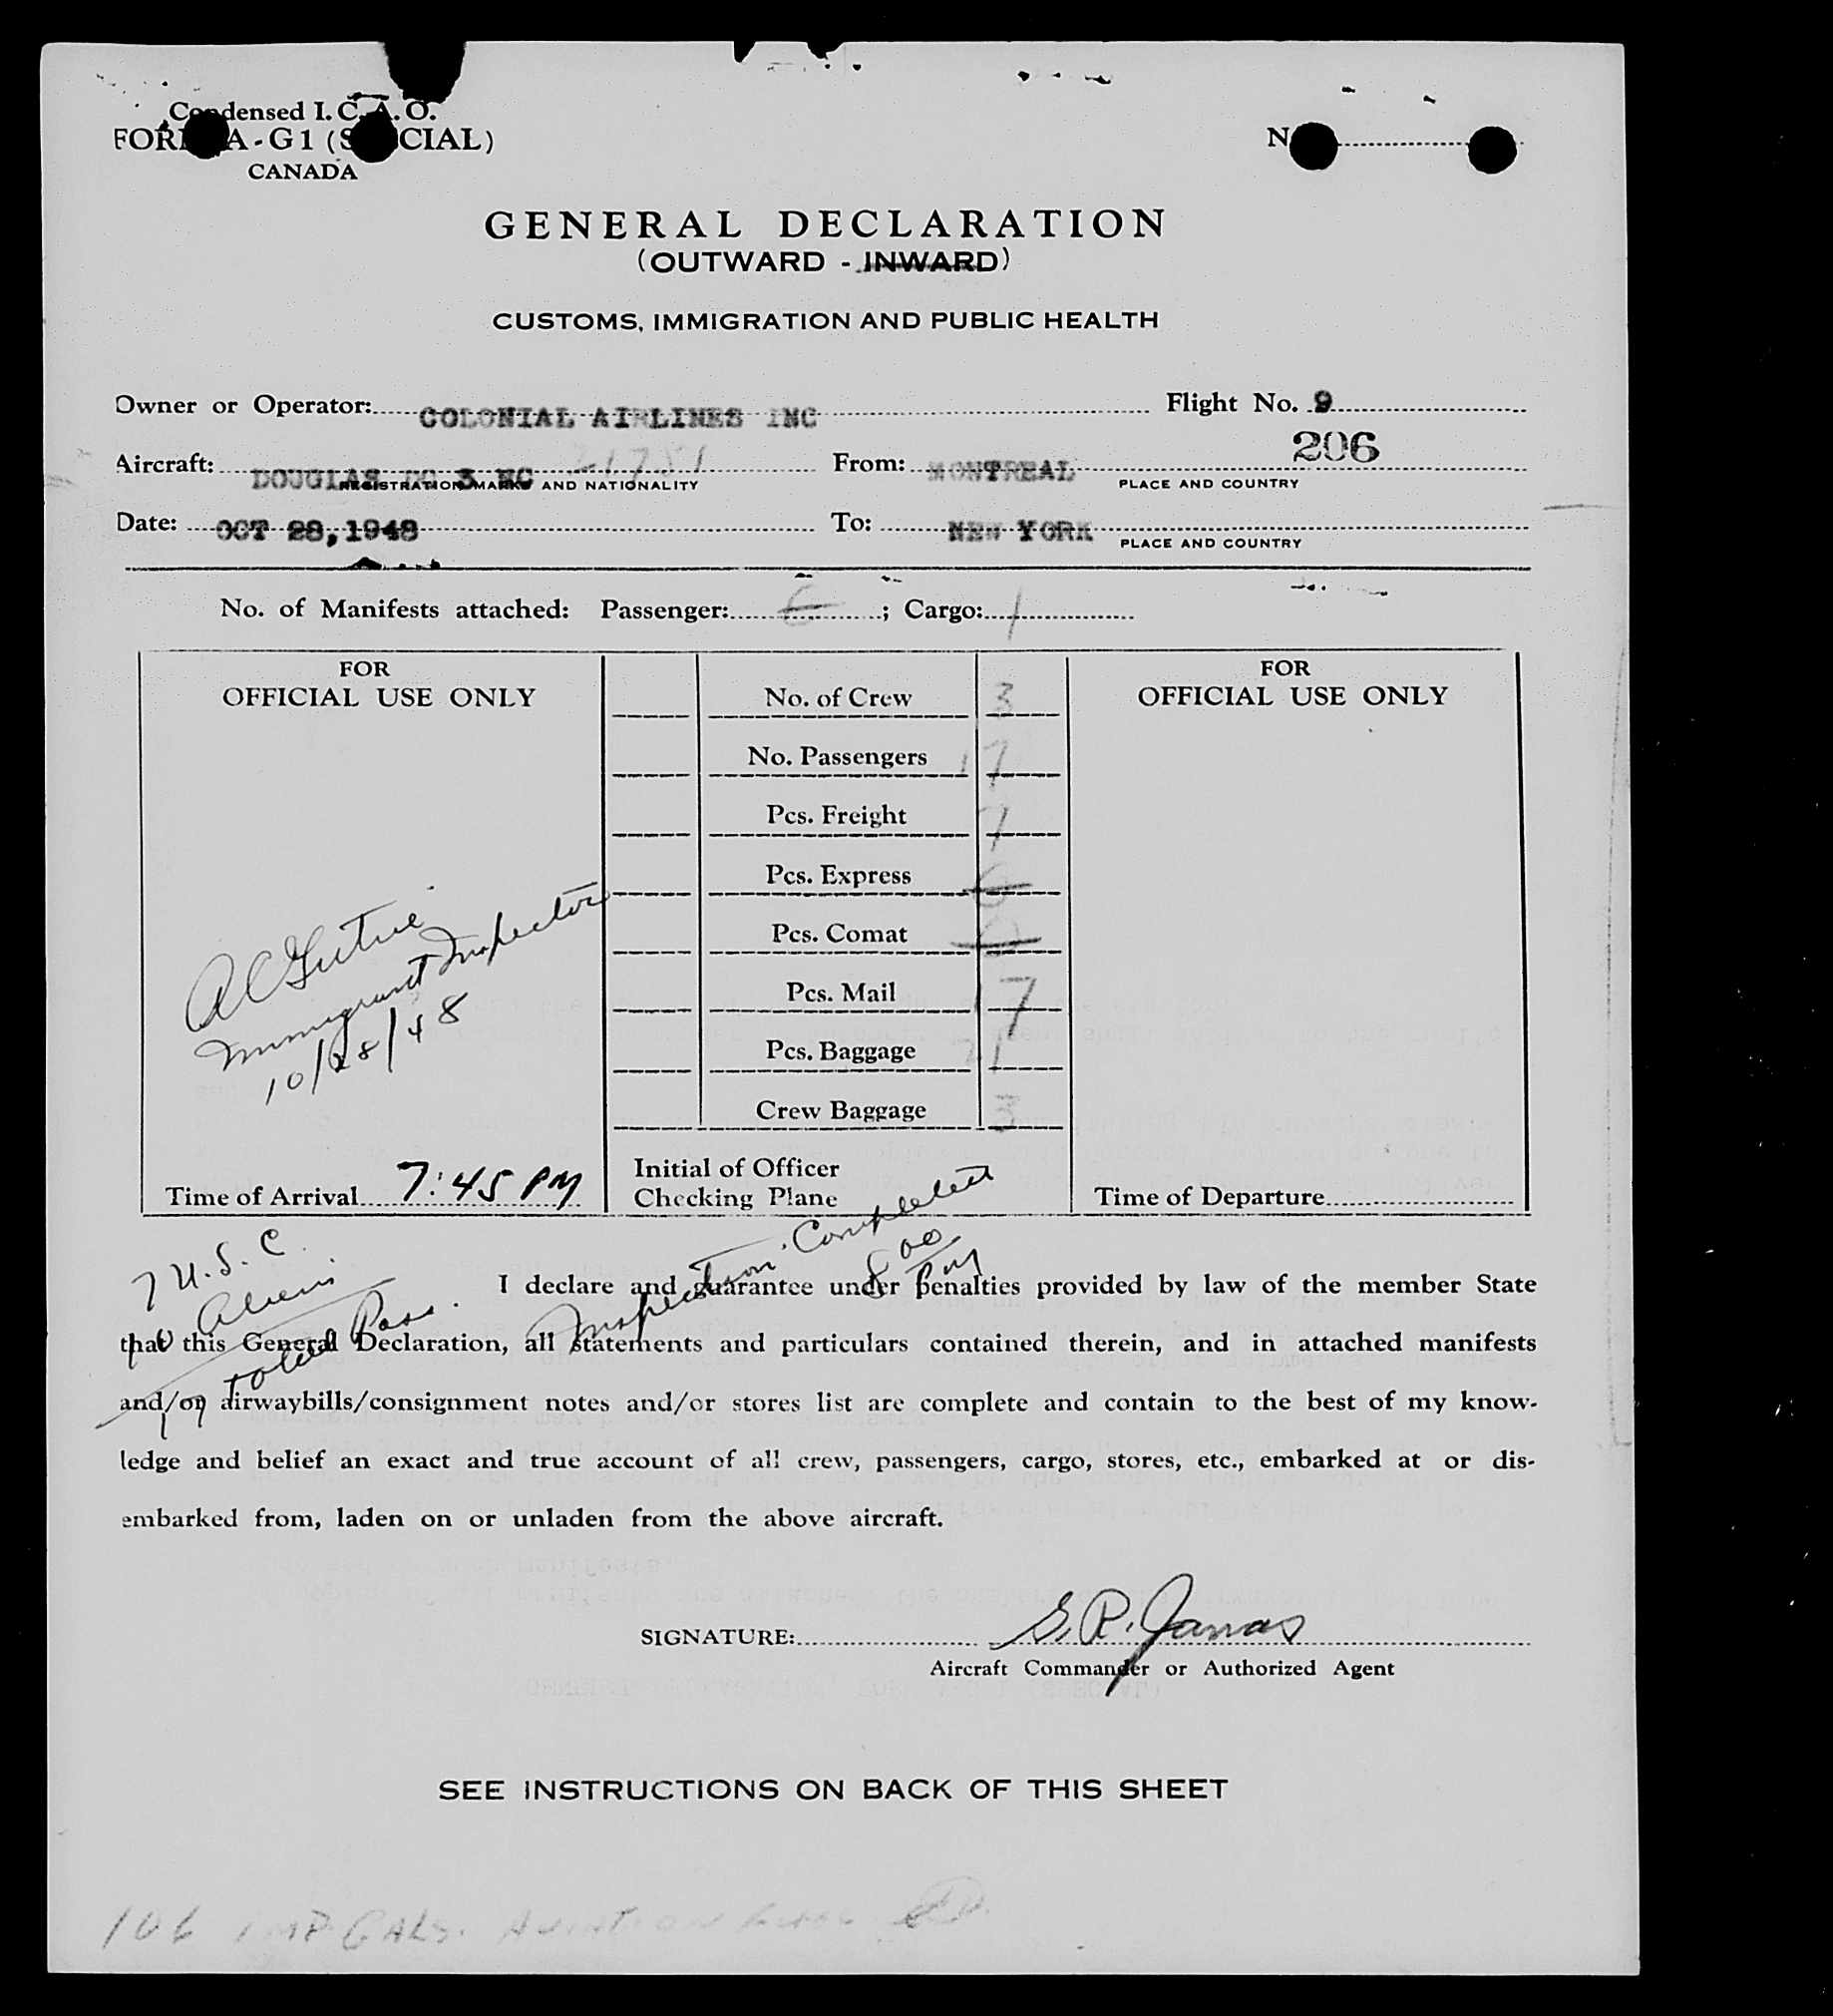 Condensed I.C.A.O.
FORM A-G1 (SPECIAL)
CANADA
N
GENERAL DECLARATION
(OUTWARD - INWARD)
CUSTOMS, IMMIGRATION AND PUBLIC HEALTH
Owner or Operator: COLONIAL AIRLINES INC Flight No. 9
206
Aircraft: DOUGLAS DC 3 NC 21751 From: MONTREAL
REGISTRATION MARKS AND NATIONALITY PLACE AND COUNTRY
Date: OCT 28, 1948 To: NEW YORK
PLACE AND COUNTRY
No. of Manifests attached: Passenger: ; Cargo: 1
FOR
OFFICIAL USE ONLY
No. of Crew 3
No. Passengers 17
Pcs. Freight 7
Pcs. Express 0
Pcs. Comat 0
Pcs. Mail 17
Pcs. Baggage 21
Crew Baggage 3
FOR
OFFICIAL USE ONLY
Immigrant Inspector
10/28/48
Time of Arrival 7:45 PM
Initial of Officer
Checking Plane
Time of Departure
Inspection Completed
8 00 PM
7 U.S.C
10 Aliens
17 Total Pass.
I declare and guarantee under penalties provided by law of the member State
that this General Declaration, all statements and particulars contained therein, and in attached manifests
and/or airwaybills/consignment notes and/or stores list are complete and contain to the best of my know-
ledge and belief an exact and true account of all crew, passengers, cargo, stores, etc., embarked at or dis-
embarked from, laden on or unladen from the above aircraft.
SIGNATURE: S. R. Janas
Aircraft Commander or Authorized Agent
SEE INSTRUCTIONS ON BACK OF THIS SHEET
106 IMP GALS. AVIATION